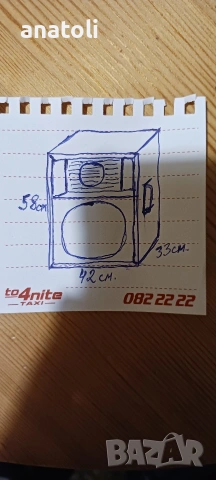 anatoli
58см
33см.
42 см.
to4nite
TAXI
082 22 22
BAZAR